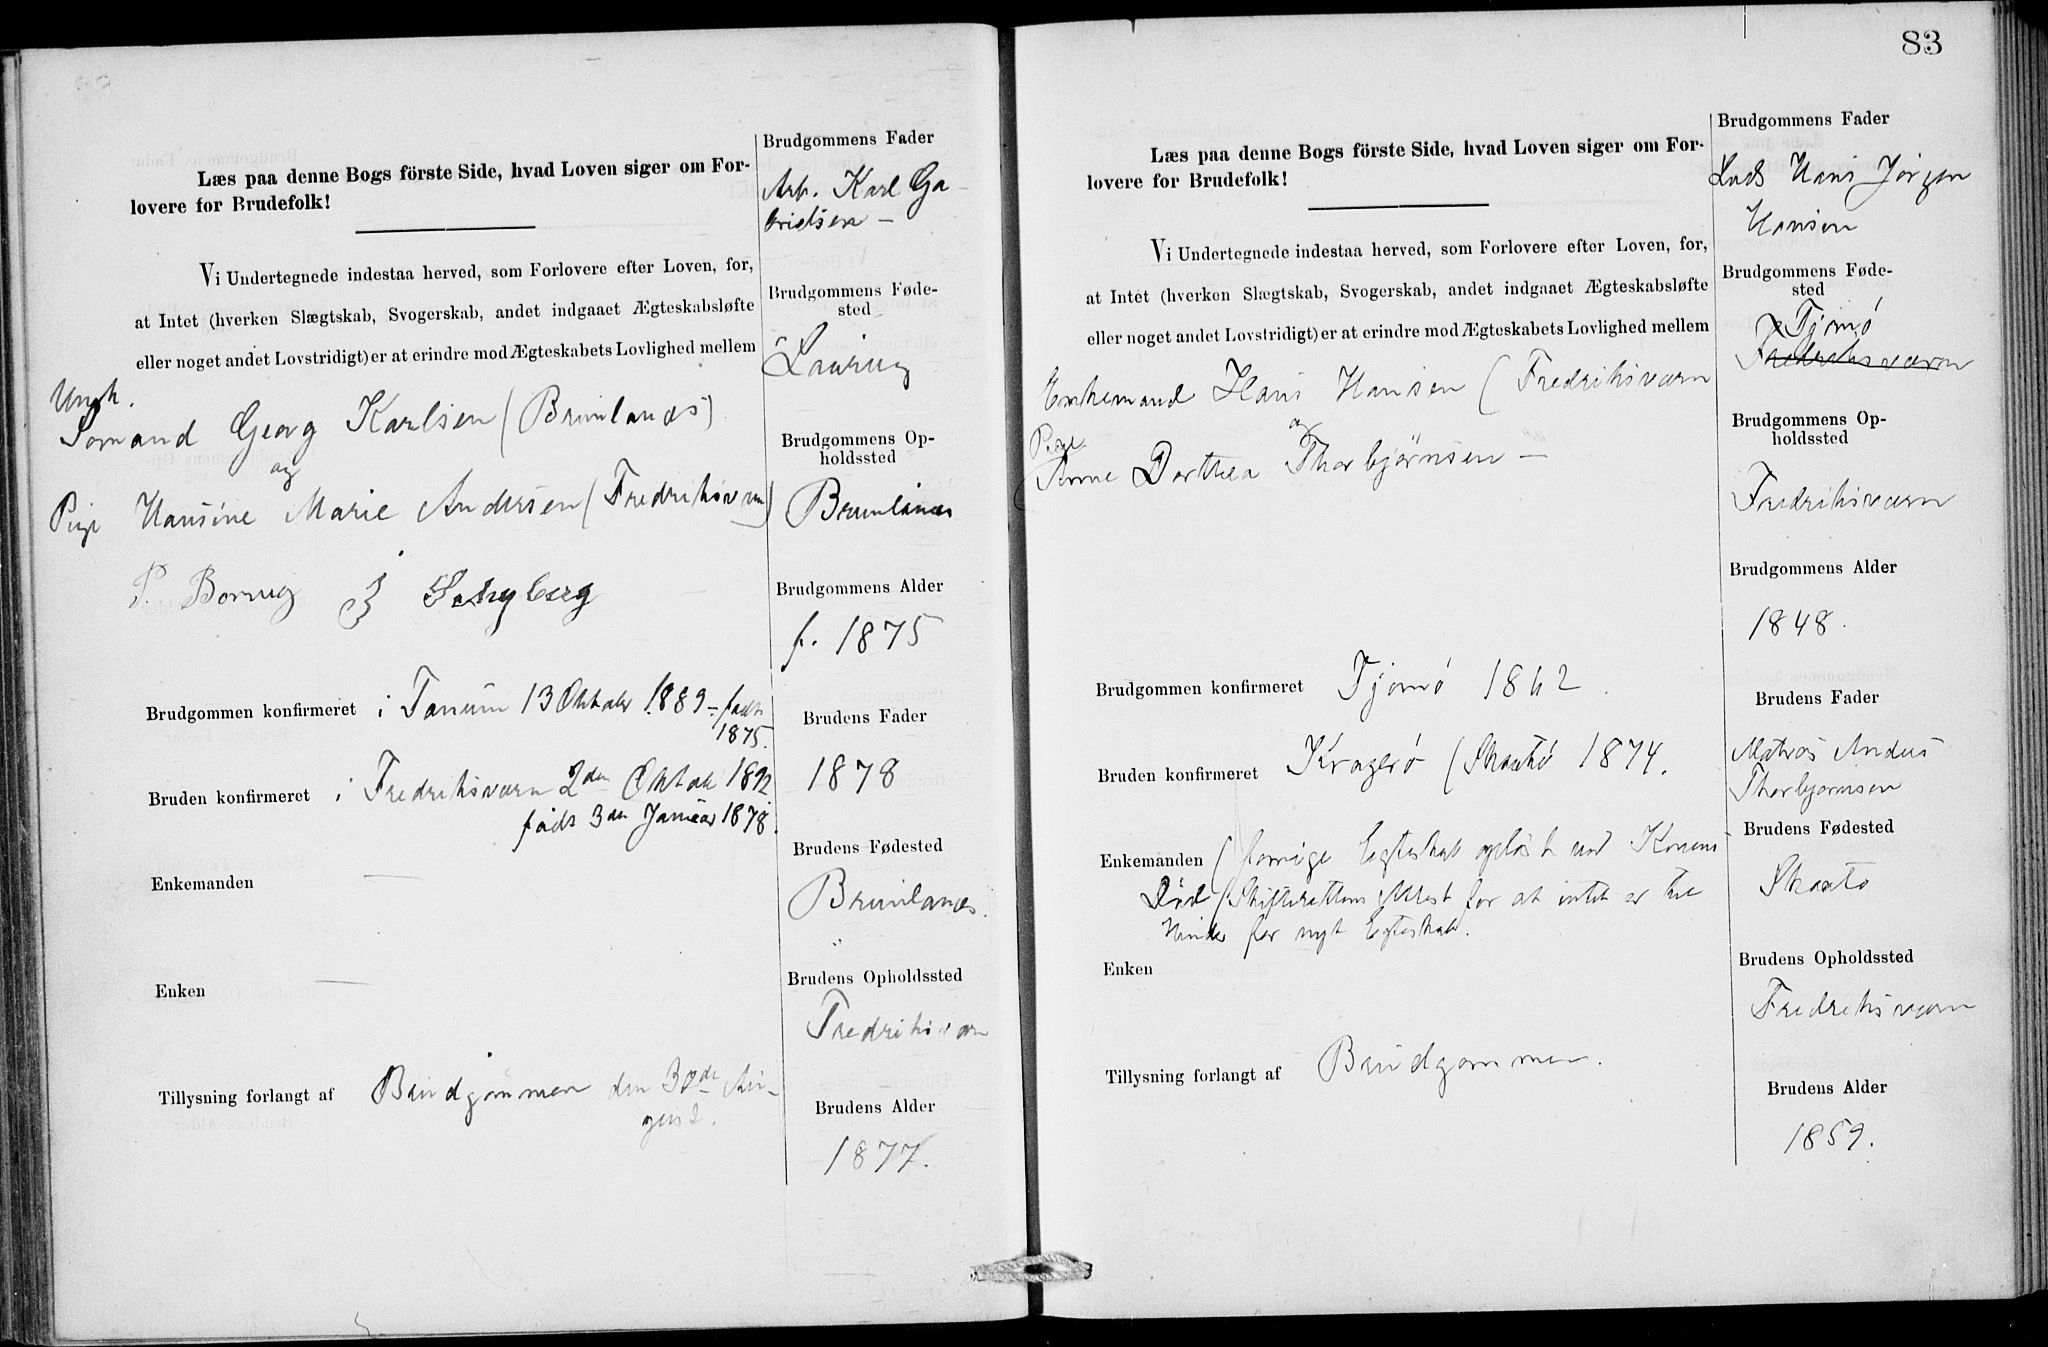 Læs paa denne Bogs förste Side, hvad Loven siger om For-
lovere for Brudefolk!
Vi Undertegnede indestaa herved, som Forlovere efter Loven, for,
at Intet (hverken Slægtskab, Svogerskab, andet indgaaet Ægteskabsløfte
eller noget andet Lovstridigt) er at erindre mod Ægteskabets Lovlighed mellem
Ungk.
Sømand Georg Karlsen (Brunlanæs)
og
Pige Hansine Marie Andersen (Fredriksværn)
P. Borrug Schyberg
Brudgommen konfirmeret i Tanum 13 Oktober 1889 - født
1875.
Bruden konfirmeret i Fredriksværn 2den Oktob 1892
født 3die Januar 1878.
Enkemanden —
Enken —
Tillysning forlangt af Brudgommen den 30de Au-
gust.
Brudgommens Fader
Arb. Karl Ga-
brielsen —
Brudgommens Føde-
sted
Laurvig
Brudgommens Op-
holdssted
Brunlanæs
Brudgommens Alder
f. 1875
Brudens Fader
1878
Brudens Fødested
Brunlanæs.
Brudens Opholdssted
Fredriksværn
Brudens Alder
1877.
83
Læs paa denne Bogs förste Side, hvad Loven siger om For-
lovere for Brudefolk!
Vi Undertegnede indestaa herved, som Forlovere efter Loven, for,
at Intet (hverken Slægtskab, Svogerskab, andet indgaaet Ægteskabsløfte
eller noget andet Lovstridigt) er at erindre mod Ægteskabets Lovlighed mellem
Enkemand Hans Hansen (Fredriksværn
og
Pige
Anne Dorthea Thorbjørnsen —
Brudgommen konfirmeret Tjømø 1862.
Bruden konfirmeret Kragerø (Skaatø 1874.
Enkemanden (forrige Egteskab opløst ved Konens
Død / Skifterettens Attest for at intet er til
Hinder for nyt Egteskab.
Enken
Tillysning forlangt af Brudgommen.
Brudgommens Fader
Lods Hans Jørgen
Hansen
Brudgommens Føde-
sted
Tjømø
Fredriksværn
Brudgommens Op-
holdssted
Fredriksværn
Brudgommens Alder
1848.
Brudens Fader
Matros Anders
Thorbjørnsen
Brudens Fødested
Skaatø
Brudens Opholdssted
Fredriksværn
Brudens Alder
1859.